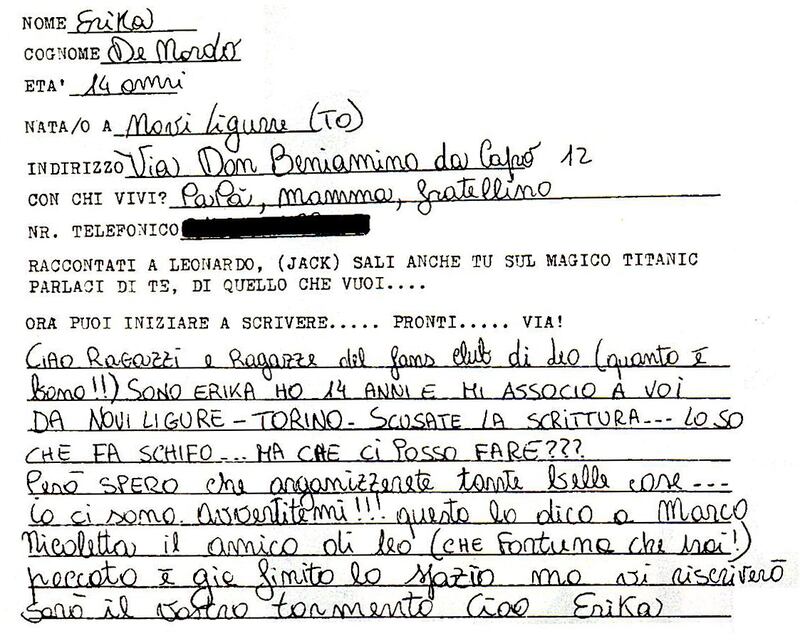 NOME Erika
COGNOME De Nardo
ETA' 14 anni
NATA/O A Novi Ligure (TO)
INDIRIZZO Via Don Beniamino da Capó 12
CON CHI VIVI? PaPà, mamma, fratellino
NR. TELEFONICO
RACCONTATI A LEONARDO, (JACK) SALI ANCHE TU SUL MAGICO TITANIC
PARLACI DI TE, DI QUELLO CHE VUOI....
ORA PUOI INIZIARE A SCRIVERE..... PRONTI..... VIA!
CIAO Ragazzi e Ragazze del fans club di leo (quanto è
bono!!) SONO ERIKA HO 14 ANNI E MI ASSOCIO A VOI
DA NOVI LIGURE - TORINO - SCUSATE LA SCRITTURA... LO SO
CHE FA SCHIFO... MA CHE CI POSSO FARE???
Però SPERO che organizzerete tante belle cose ---
io ci sono. avvertitemi!!! questo lo dico a Marco
Nicoletta il amico di leo (CHE Fortuna che hai!)
peccato è già finito lo spazio ma vi riscriverò
sarò il vostro tormento Ciao Erika